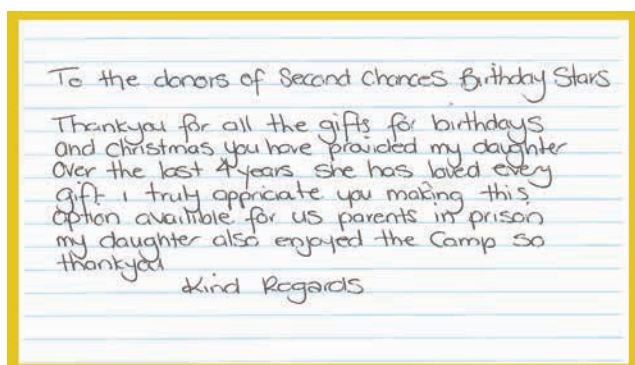 To the donors of Second Chances Birthday Stars
Thankyou for all the gifts for birthdays
and christmas you have provided my daughter
over the last 4 years she has loved every
gift i truly appriciate you making this
option availible for us parents in prison
my daughter also enjoyed the Camp so
thankyou
Kind Regards